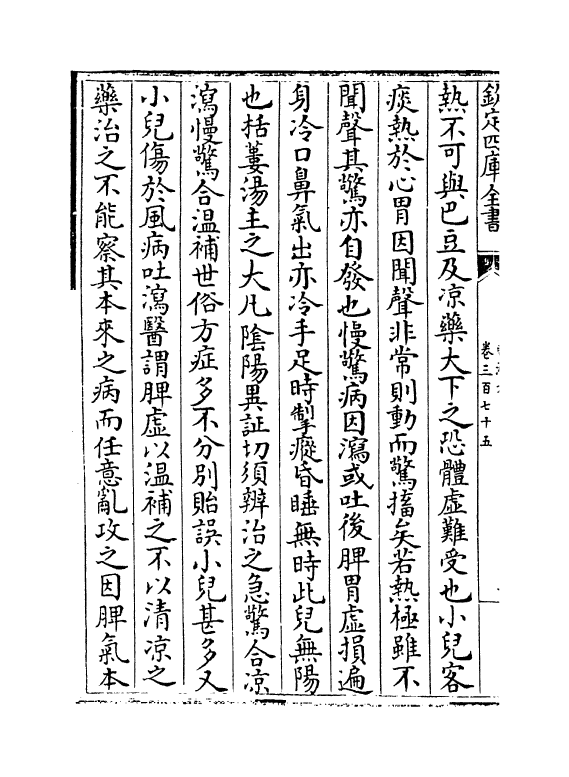 欽定四庫全書
卷三百七十五
熱不可與巴豆及凉藥大下之恐體虛難受也小兒客
痰熱於心胃因聞聲非常則動而驚搐矣若熱極雖不
聞聲其驚亦自發也慢驚病因瀉或吐後脾胃虛損遍
身冷口鼻氣出亦冷手足時掣瘲昏睡無時此兒無陽
也栝蔞湯主之大凡陰陽異証切須辨治之急驚合凉
瀉慢驚合温補世俗方症多不分別貽誤小兒甚多又
小兒傷於風病吐瀉醫謂脾虛以温補之不以清凉之
藥治之不能察其本來之病而任意亂攻之因脾氣本